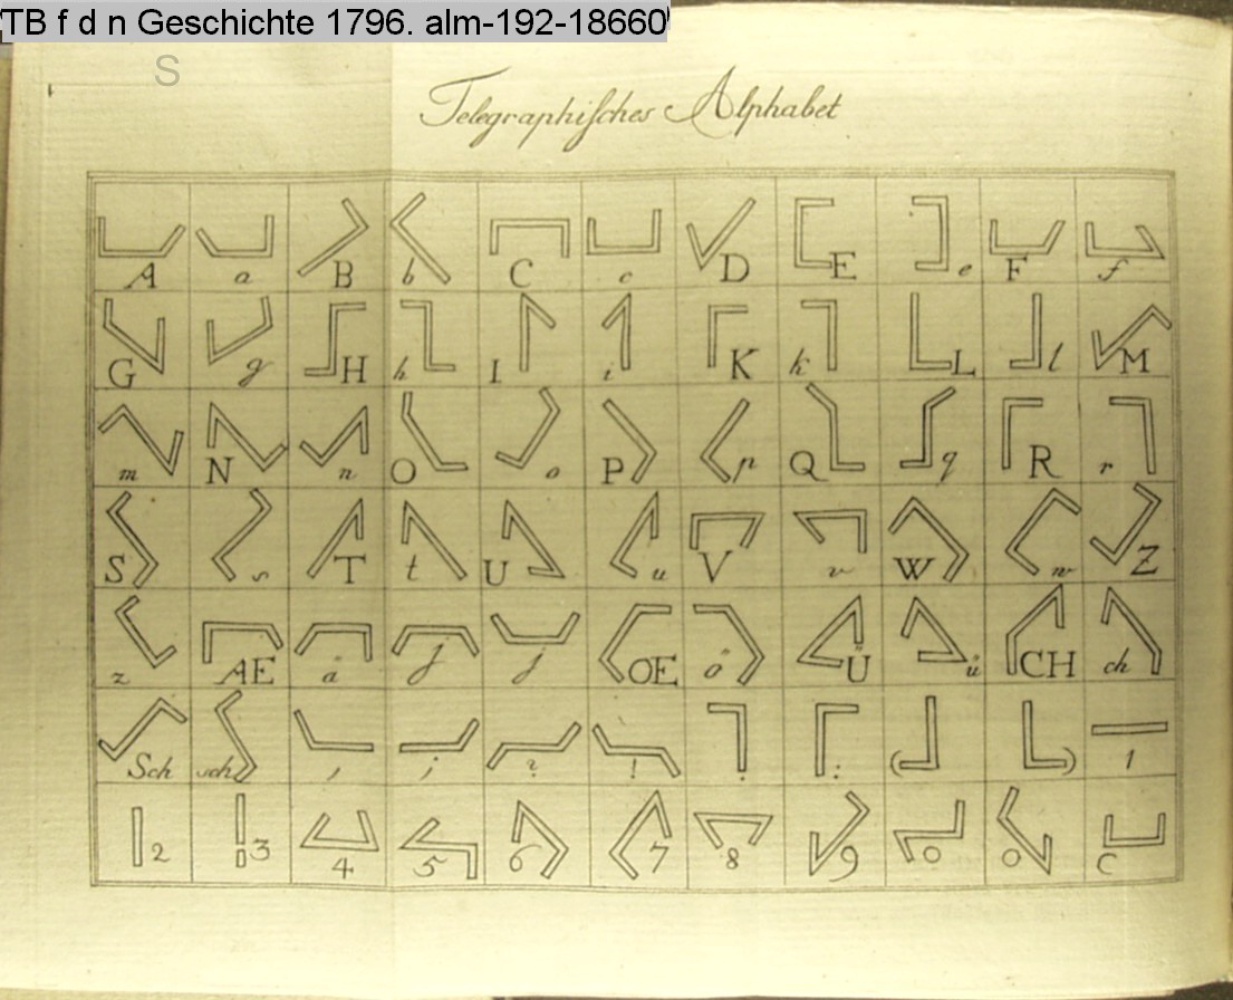 TB f d n Geschichte 1796. alm-192-18660
S
Telegraphiſches Alphabet
A a B b C c D E e F f
G g H h I i K k L l M
m N n O o P p Q q R r
S s T t U u V v W w Z
z AE å j j OE ö Ü ü CH ch
Sch sch , ; ? ! . : ( ) 1
2 3 4 5 6 7 8 9 0 0 C